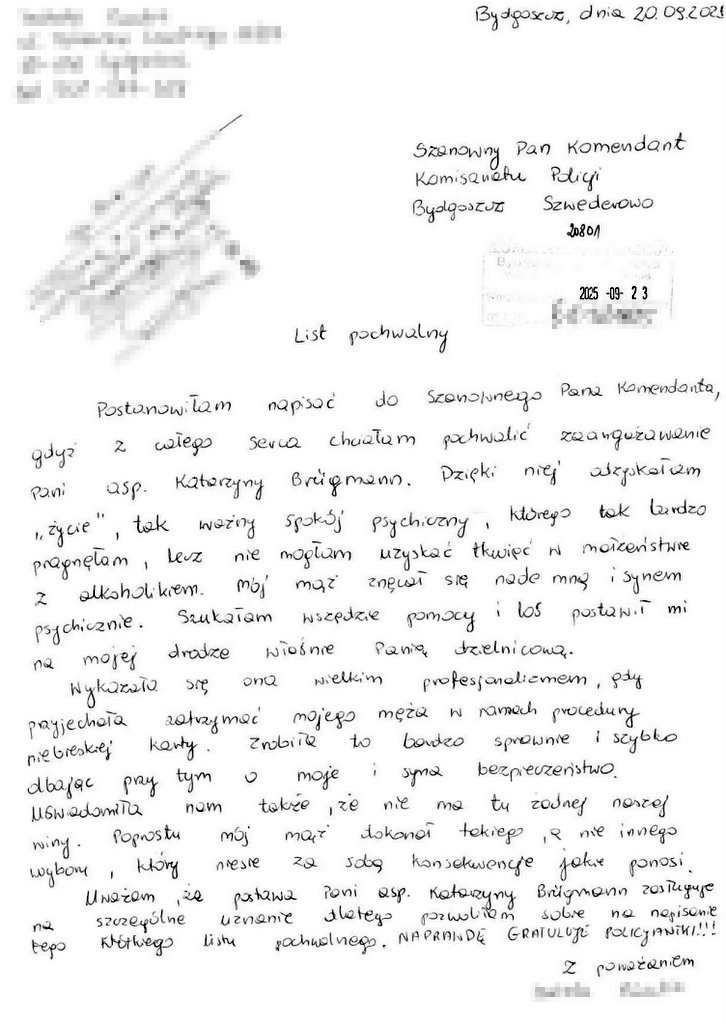 Bydgoszcz, dnia 20.09.2025
Szanowny Pan Komendant
Komisariatu Policji
Bydgoszcz Szwederowo
20801
2025 -09- 23
List pochwalny
Postanowiłam napisać do Szanownego Pana Komendanta,
gdyż z całego serca chciałam pochwalić zaangażowanie
Pani asp. Katarzyny Brügmann. Dzięki niej odzyskałam
„życie”, tak ważny spokój psychiczny, którego tak bardzo
pragnęłam, lecz nie mogłam uzyskać tkwięć w małżeństwie
z alkoholikiem. Mój mąż znęcał się nade mną i synem
psychicznie. Szukałam wszędzie pomocy i los postawił mi
na mojej drodze właśnie Panią dzielnicową.
Wykazała się ona wielkim profesjonalizmem, gdy
przyjechała zatrzymać mojego męża w ramach procedury
niebieskiej karty. Zrobiła to bardzo sprawnie i szybko
dbając przy tym o moje i syna bezpieczeństwo.
Uświadomiła nam także, że nie ma tu żadnej naszej
winy. Poprostu mój mąż dokonał takiego, a nie innego
wyboru, który niesie za sobą konsekwencje jakie ponosi.
Uważam, że postawa Pani asp. Katarzyny Brügmann zasługuje
na szczególne uznanie dlatego pozwoliłam sobie na napisanie
tego krótkiego listu pochwalnego. NAPRAWDĘ GRATULUJĘ POLICJANTKI!!!
Z poważaniem